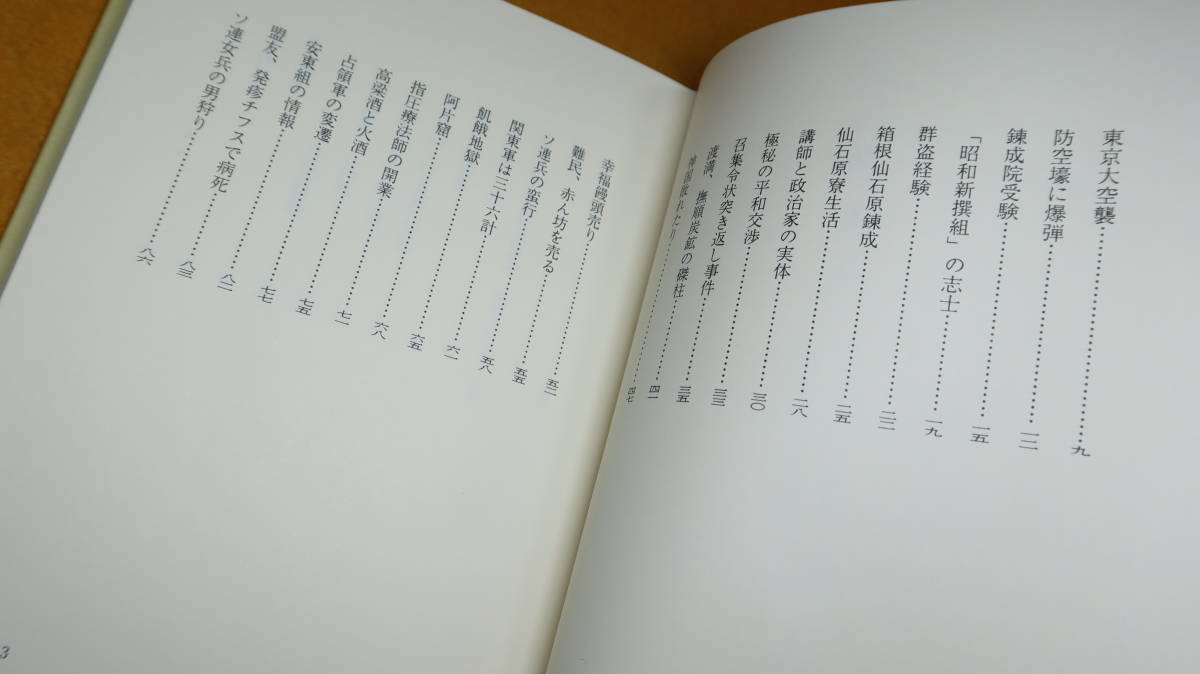 東京大空襲……九
防空壕に爆弾……一二
錬成院受験……一五
「昭和新撰組」の志士……一九
群盗経験……二二
箱根仙石原錬成……二五
仙石原寮生活……二八
講師と政治家の実体……三〇
極秘の平和交渉……三三
召集令状突き返し事件……三五
渡満、撫順炭鉱の磔柱……四一
神国敗れたり……四七
幸福饅頭売り……五二
難民、赤ん坊を売る……五五
ソ連兵の蛮行……五八
関東軍は三十六計……六一
飢餓地獄……六五
阿片窟……六八
指圧療法師の開業……七一
高梁酒と火酒……七五
占領軍の変遷……七七
安東組の情報……八二
盟友、発疹チフスで病死……八三
ソ連女兵の男狩り……八六
3